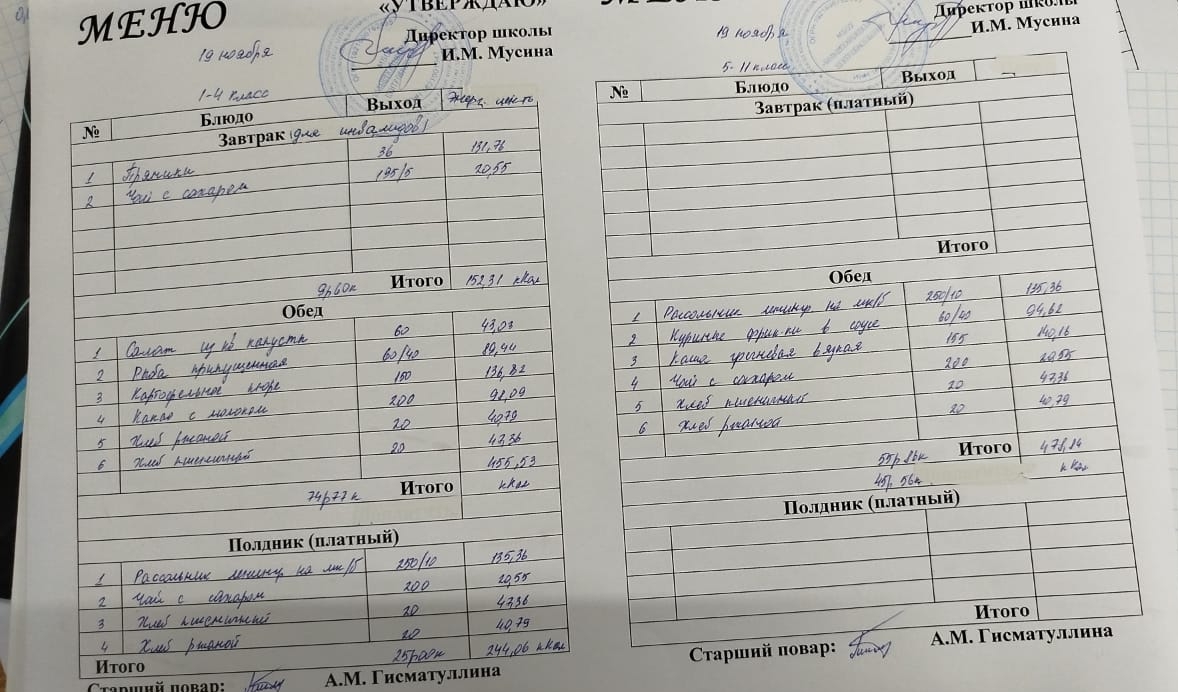 МЕНЮ
«УТВЕРЖДАЮ»
Директор школы
И.М. Мусина
19 ноября
1-4 класс
№ Блюдо Выход Энерг. центь
Завтрак (для инвалидов)
1 Пряники 36 131,76
2 Чай с сахаром 195/5 20,55
9р60к Итого 152,31 кКал
Обед
1 Салат из б/к капусты 60 43,03
2 Рыба припущенная 60/40 89,44
3 Картофельное пюре 150 136,82
4 Какао с молоком 200 92,09
5 Хлеб ржаной 20 40,79
6 Хлеб пшеничный 20 47,36
455,53
74р77к Итого кКал
Полдник (платный)
1 Рассольник ленингр на мк/б 250/10 135,36
2 Чай с сахаром 200 20,55
3 Хлеб пшеничный 20 47,36
4 Хлеб ржаной 20 40,79
Итого 25р00к 244,06 кКал
Старший повар: А.М. Гисматуллина
Директор школы
И.М. Мусина
19 ноября
5-11 класс
№ Блюдо Выход
Завтрак (платный)
Итого
Обед
1 Рассольник ленингр на мк/б 250/10 135,36
2 Куриные фрик-ки в соусе 60/40 94,62
3 Каша гречневая вязкая 155 140,16
4 Чай с сахаром 200 20,55
5 Хлеб пшеничный 20 47,36
6 Хлеб ржаной 20 40,79
55р 86к Итого 478,84
45р 56к кКал
Полдник (платный)
Итого
Старший повар: А.М. Гисматуллина